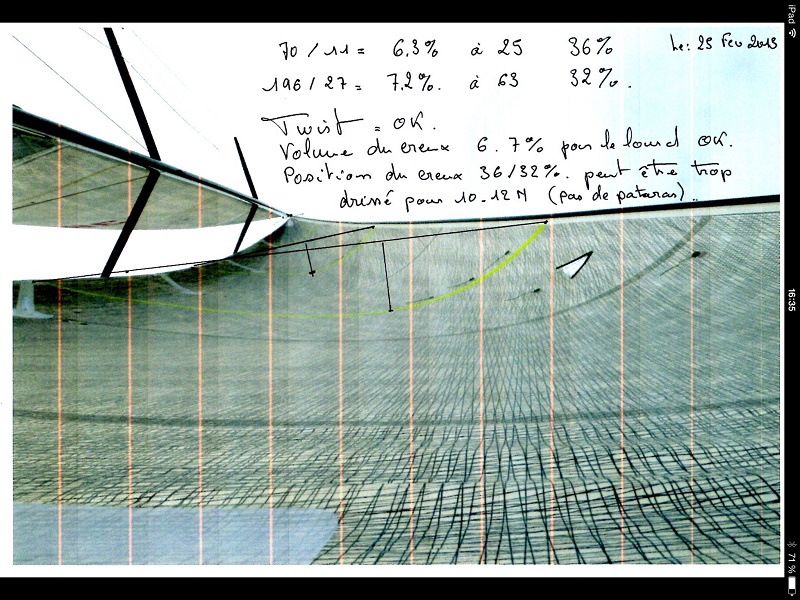 70 / 11 = 6.3% à 25 36%
Le: 25 Fev 2013
196 / 27 = 7.2%. à 63 32%.
Twist = OK.
Volume du creux 6.7% pour le lourd OK.
Position du creux 36/32%. peut être trop
drissé pour 10-12N (pas de pataras)..
iPad
16:35
71 %